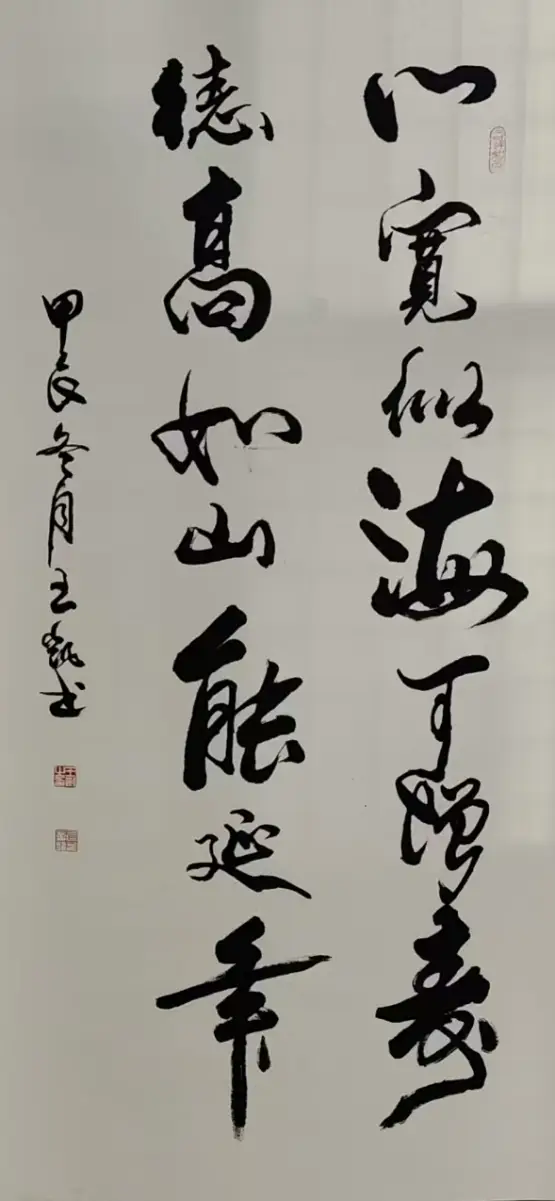 心寬似海可增壽
德高如山能延年
甲辰冬月王凱书